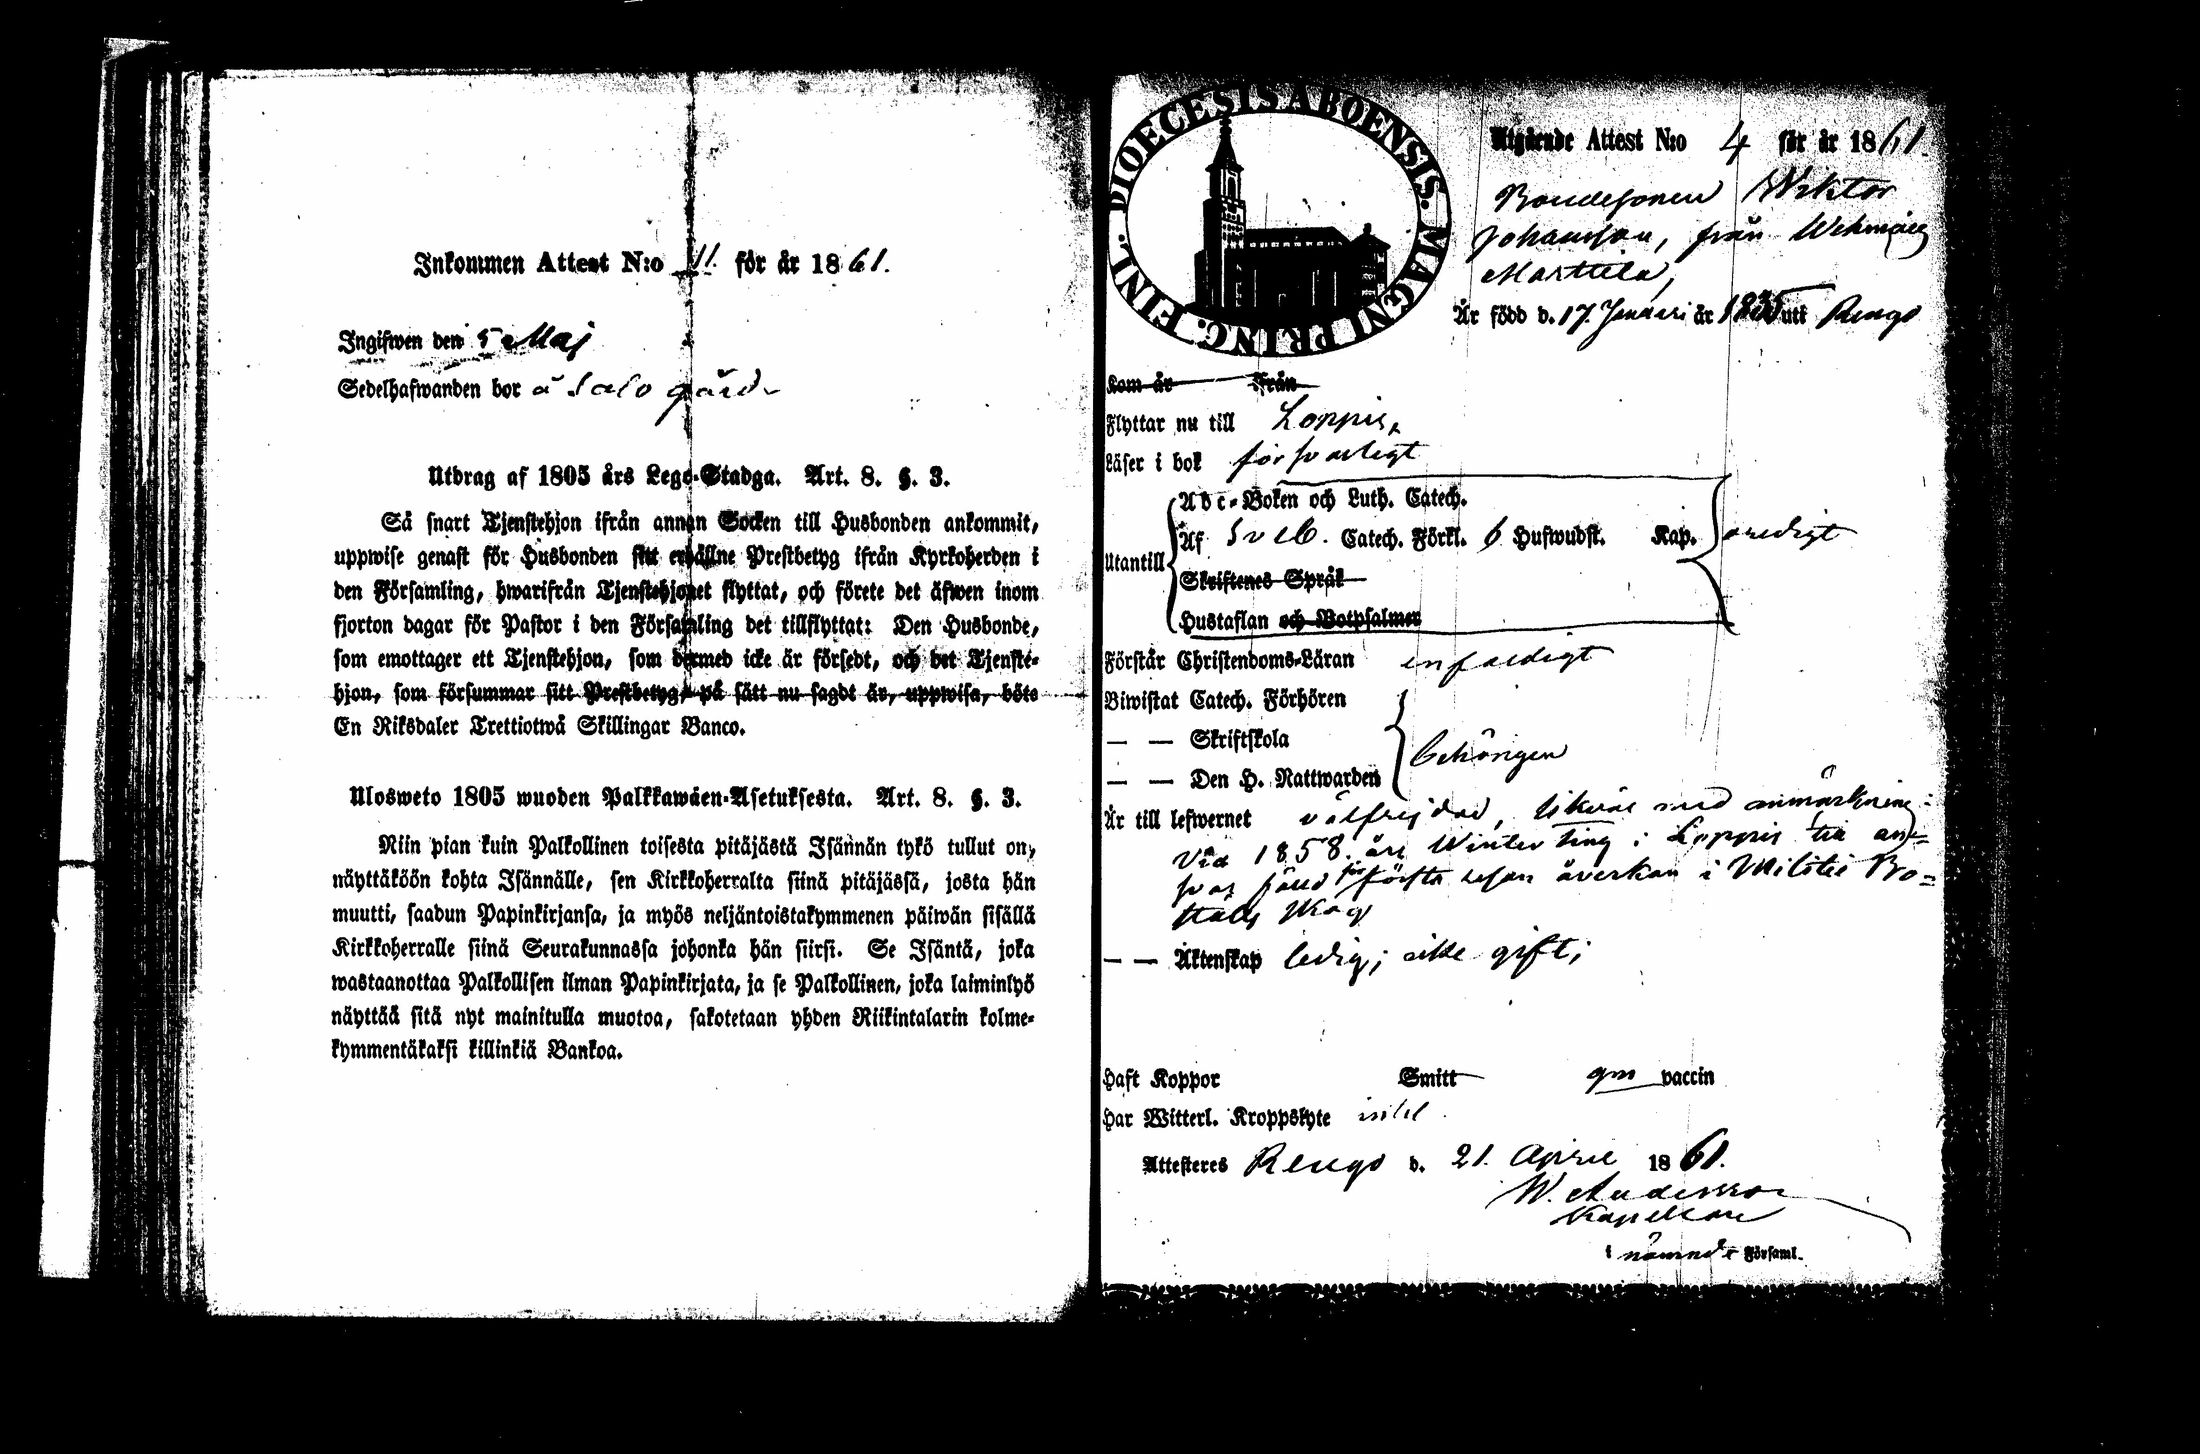 Inkommen Attest N:o 11. för år 1861.
Ingifwen den 5 Maj
Sedelhafwanden bor å Salo gård
Utdrag af 1805 års Lego-Stadga. Art. 8. §. 3.
Så snart Tjenstehjon ifrån annan Socken till Husbonden ankommit,
uppwise genast för Husbonden sitt erhållne Prestbetyg ifrån Kyrkoherden i
den Församling, hwarifrån Tjenstehjonet flyttat, och förete det äfwen inom
fjorton dagar för Pastor i den Församling det tillflyttat: Den Husbonde,
som emottager ett Tjenstehjon, som dermed icke är försedt, och det Tjenste-
hjon, som försummar sitt Prestbetyg, på sätt nu sagdt är, uppwisa, böte
En Riksdaler Trettiotwå Skillingar Banco.
Ulosweto 1805 wuoden Palkkawäen-Asetuksesta. Art. 8. §. 3.
Niin pian kuin Palkollinen toisesta pitäjästä Isännän tykö tullut on,
näyttäköön kohta Isännälle, sen Kirkkoherralta siinä pitäjässä, josta hän
muutti, saadun Papinkirjansa, ja myös neljäntoistakymmenen päiwän sisällä
Kirkkoherralle siinä Seurakunnassa johonka hän siirsi. Se Isäntä, joka
wastaanottaa Palkollisen ilman Papinkirjata, ja se Palkollinen, joka laiminlyö
näyttää sitä nyt mainitulla muotoa, sakotetaan yhden Riikintalarin kolme-
kymmentäkaksi killinkiä Bankoa.
DIOECESIS ABOENSIS. MAGNI PRINC. FINL.
Utgående Attest N:o 4 för år 1861.
Bondesonen Wiktor
Johansson, från Wehmais
Marttila,
Är född d. 17 Januari år 1835 uti Rengo
Kom år från
Flyttar nu till Loppis,
Läser i bok försvarligt
Abc-Boken och Luth. Catech.
Utantill Af Sveb. Catech. Förkl. 6 Hufwudst. Kap. oredigt
Skriftenes Språk
Hustaflan och Botpsalmer
Förstår Christendoms-Läran enfaldigt
Biwistat Catech. Förhören
— — Skriftskola behörigen
— — Den H. Nattwarden
Är till lefwernet välfrejdad, likväl med anmärkning:
Vid 1858 års Winter ting i Loppis till an-
svar fälld för första resan åverkan i Militie Bo-
ställs skog
— — Äktenskap ledig; icke gift;
Haft Koppor Smitt gm vaccin
Har Witterl. Kroppslyte intet
Attesteres Rengo d. 21. April 1861.
W. Andersson
Kapellan
i nämnde Församl.